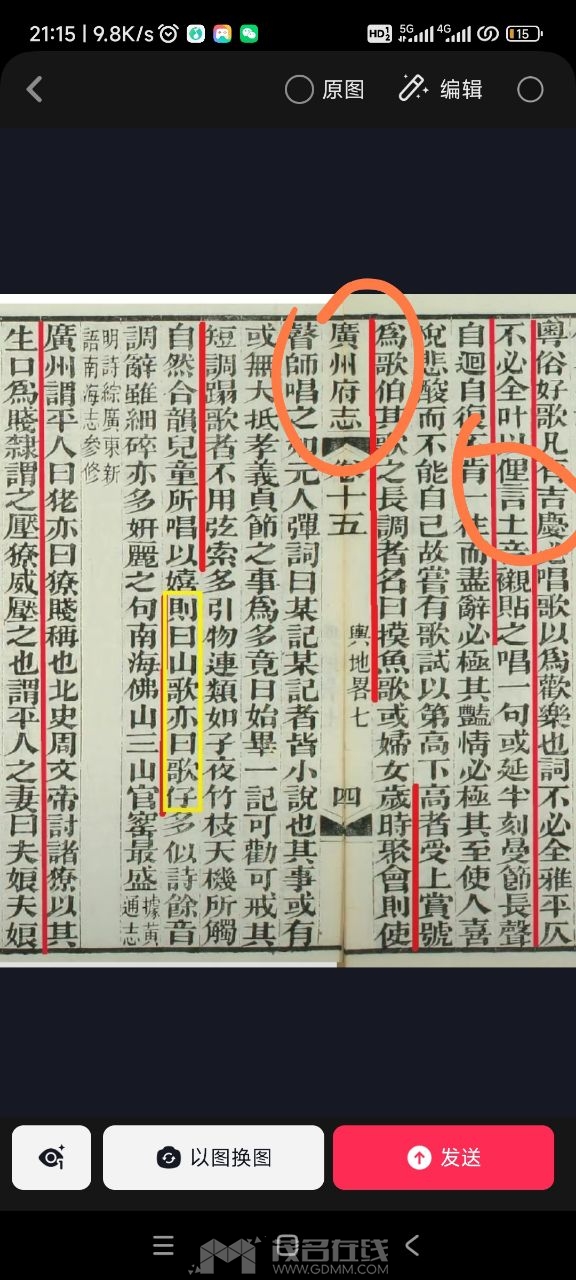 21:15 | 9.8K/s
HD 1 2 5G 4G 15
原图 编辑
粵俗好歌凡有吉慶必唱歌以為歡樂也詞不必全雅平仄
不必全叶以俚言土音襯貼之唱一句或延半刻曼節長聲
自迴自復不肯一往而盡辭必極其豔情必極其至使人喜
悅悲酸而不能自已故嘗有歌試以第高下高者受上賞號
為歌伯其歌之長調者名曰摸魚歌或婦女歲時聚會則使
廣州府志 卷十五 輿地畧七 四
瞽師唱之如元人彈詞曰某記某記者皆小說也其事或有
或無大抵孝義貞節之事為多竟日始畢一記可勸可戒其
短調蹋歌者不用弦索多引物連類如子夜竹枝天機所觸
自然合韻兒童所唱以嬉則曰山歌亦曰歌仔多似詩餘音
調辭雖細碎亦多妍麗之句南海佛山三山官窰最盛據黃通志
明詩綜廣東新語南海志參修
廣州謂平人曰狫亦曰獠賤稱也北史周文帝討諸獠以其
生口為賤隸謂之壓獠威壓之也謂平人之妻曰夫娘夫娘
以图换图
发送
茂名在线
WWW.GDMM.COM